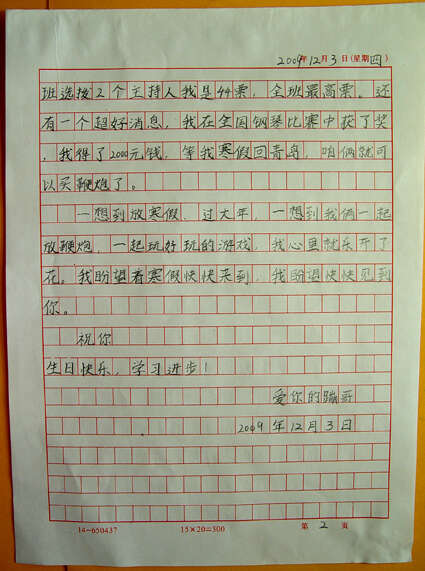 2009年12月3日(星期四)
班选拔2个主持人我是44票，全班最高票。还
有一个超好消息，我在全国钢琴比赛中获了奖
，我得了2000元钱，等我寒假回青岛，咱俩就可
以买鞭炮了。
一想到放寒假，过大年，一想到我俩一起
放鞭炮，一起玩好玩的游戏，我心里就乐开了
花。我盼望着寒假快快来到，我盼望快快见到
你。
祝你
生日快乐，学习进步！
爱你的蹦哥
2009年12月3日
14-650437 15×20=300 第2页